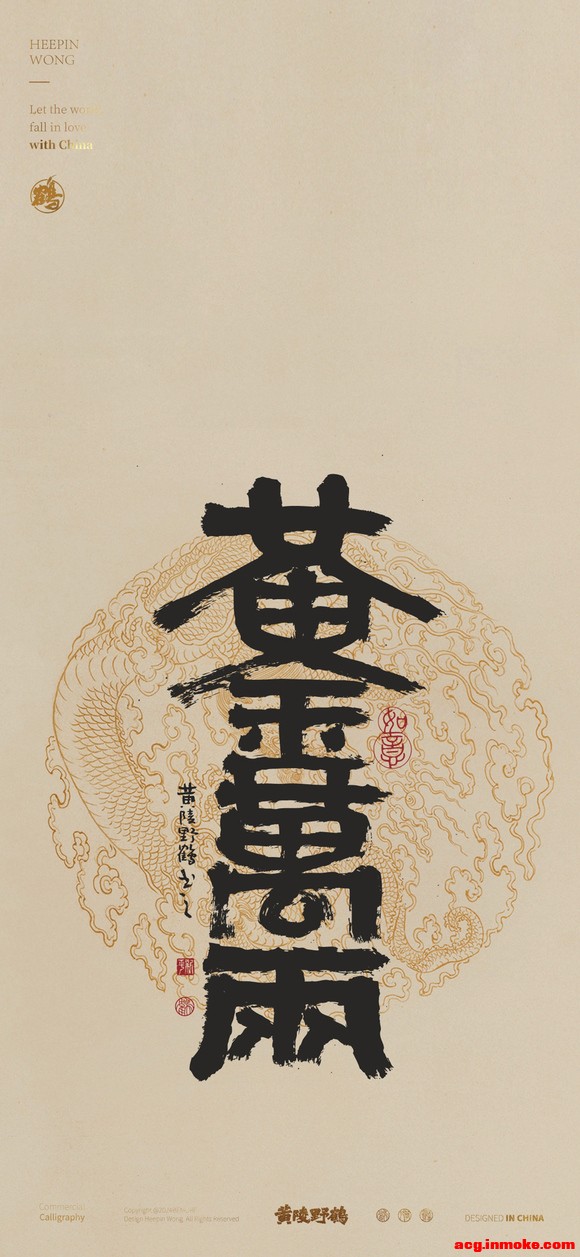 HEEPIN
WONG
Let the world
fall in love
with China
鶴
黄金萬兩
如意
黄陵野鶴书之
Commercial
Calligraphy
Design Heepin Wong, All Rights Reserved
黄陵野鶴
DESIGNED IN CHINA
acg.inmoke.com